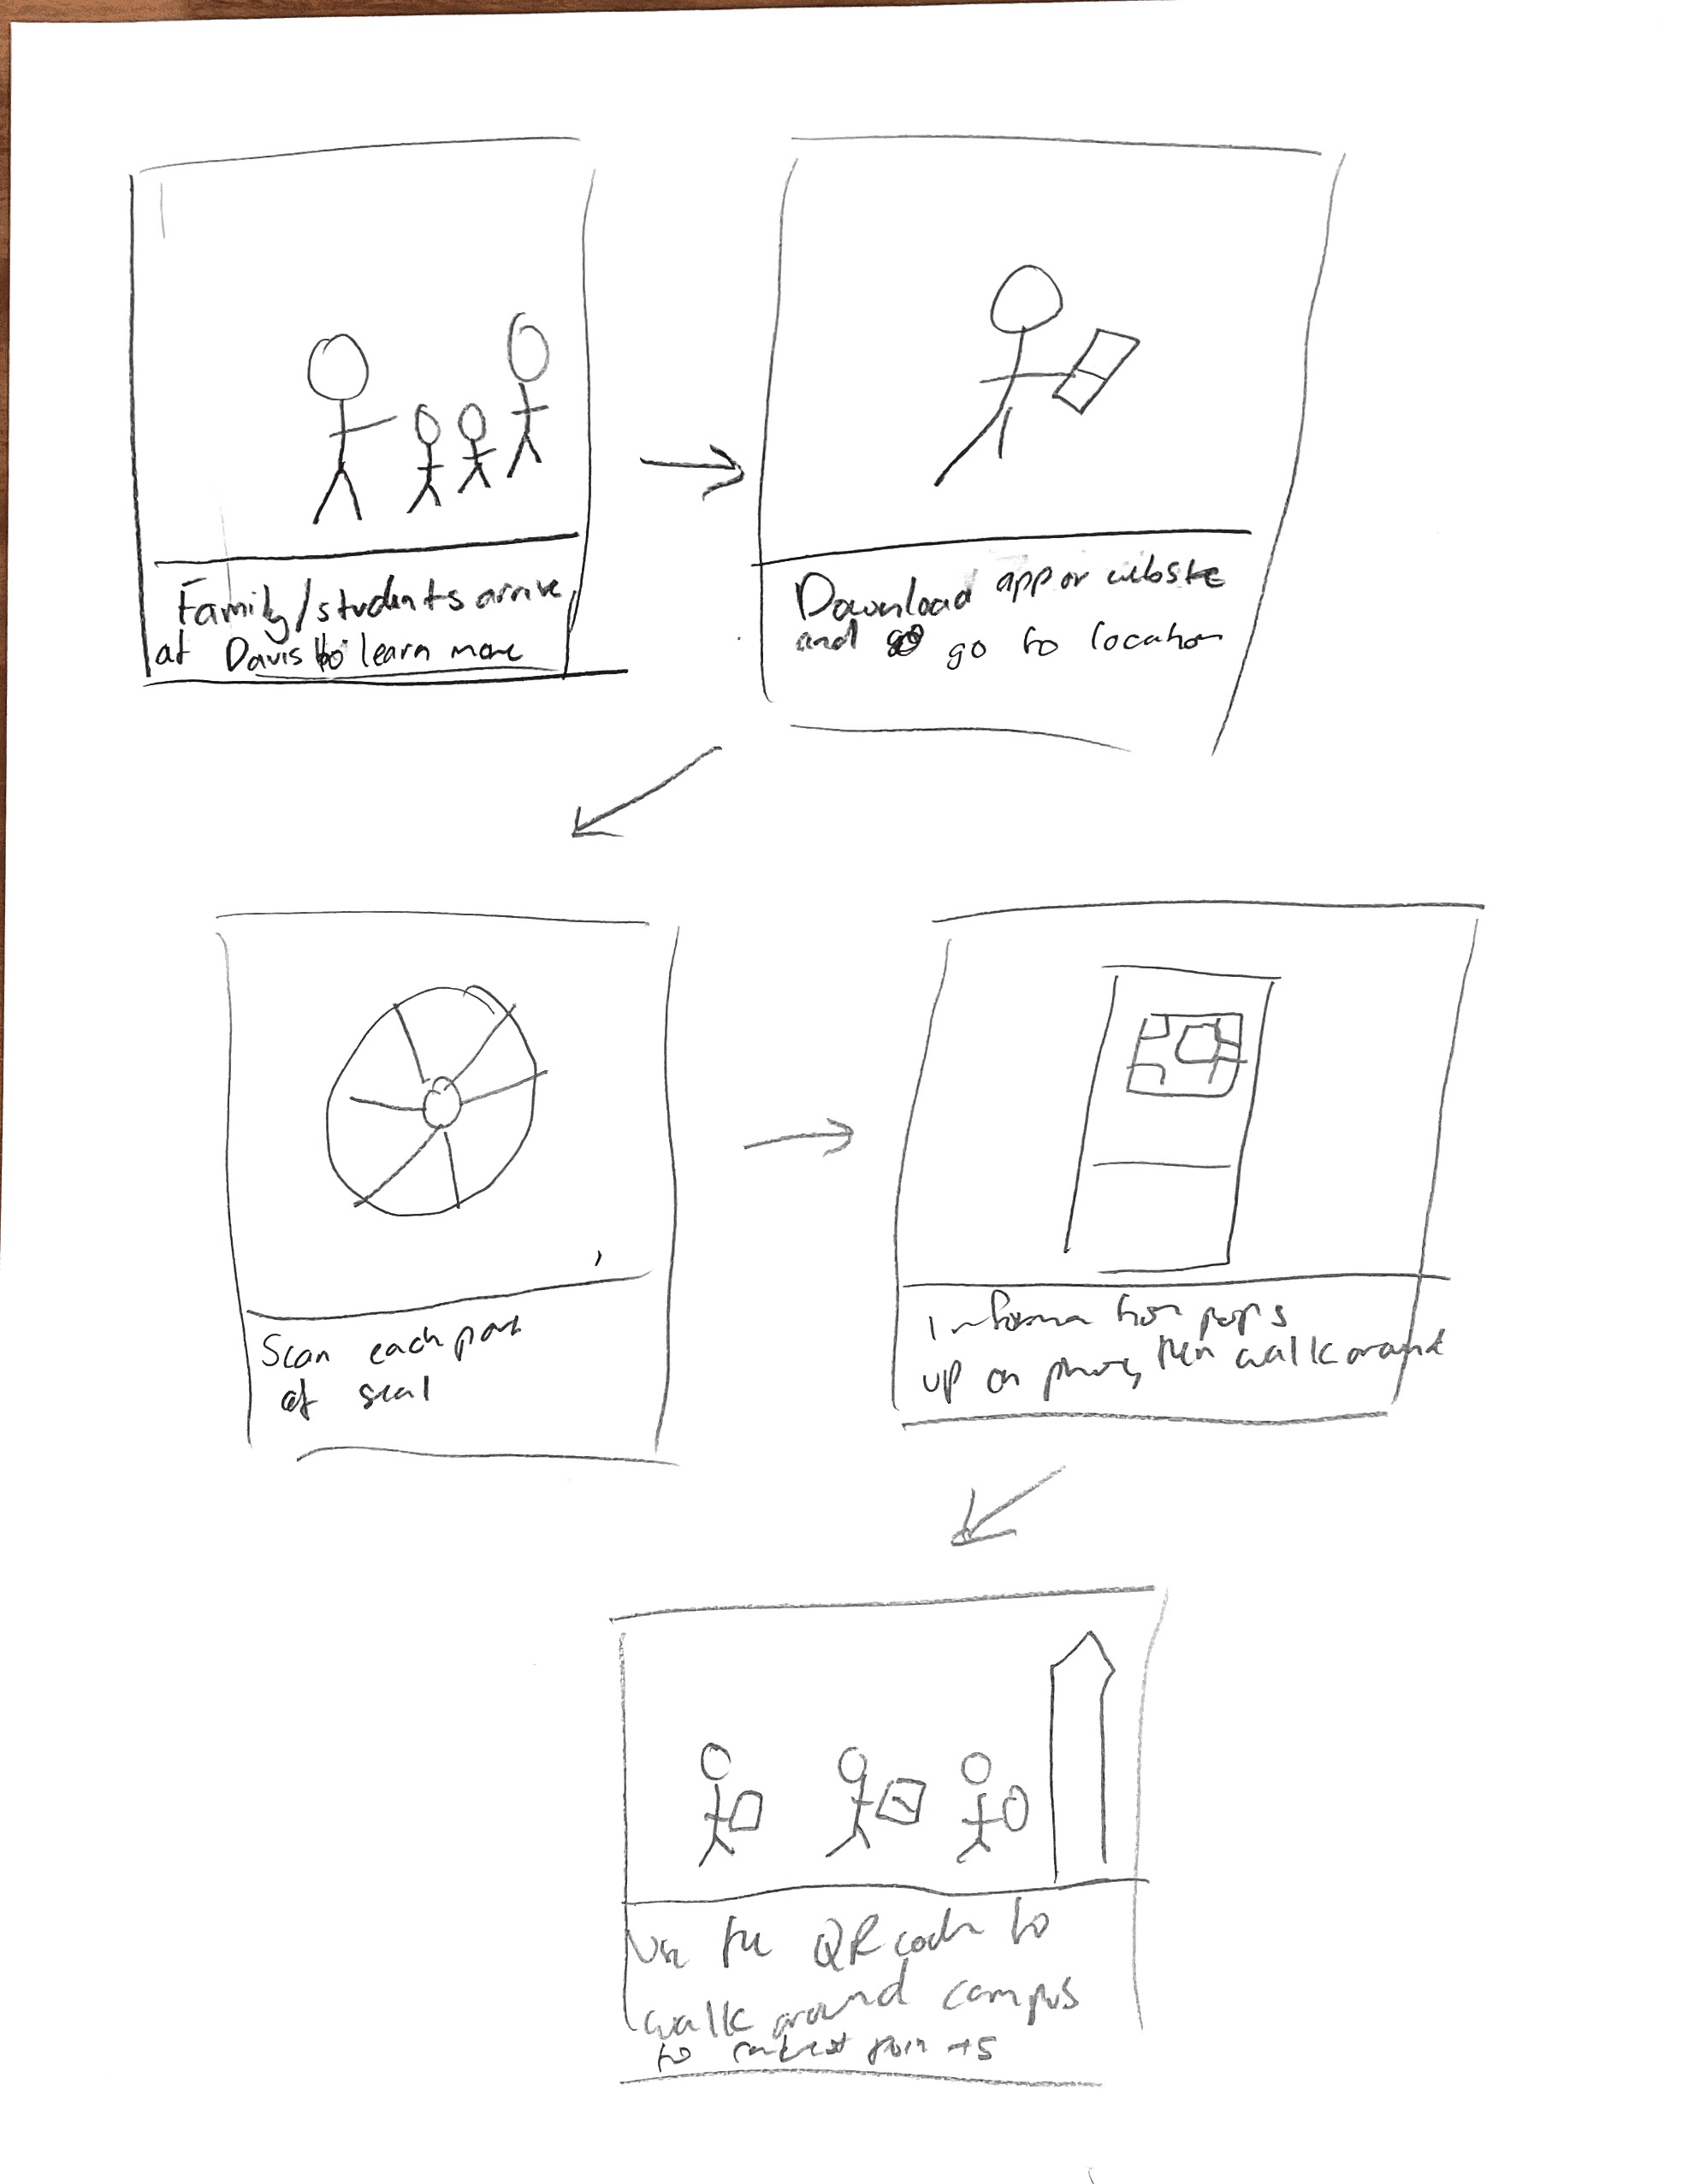 Family/students arrive
at Davis to learn more
Download app or website
and go go to location
Scan each part
of seal
Information pops
up on phone, then walk around
Use the QR code to
walk around campus
to points